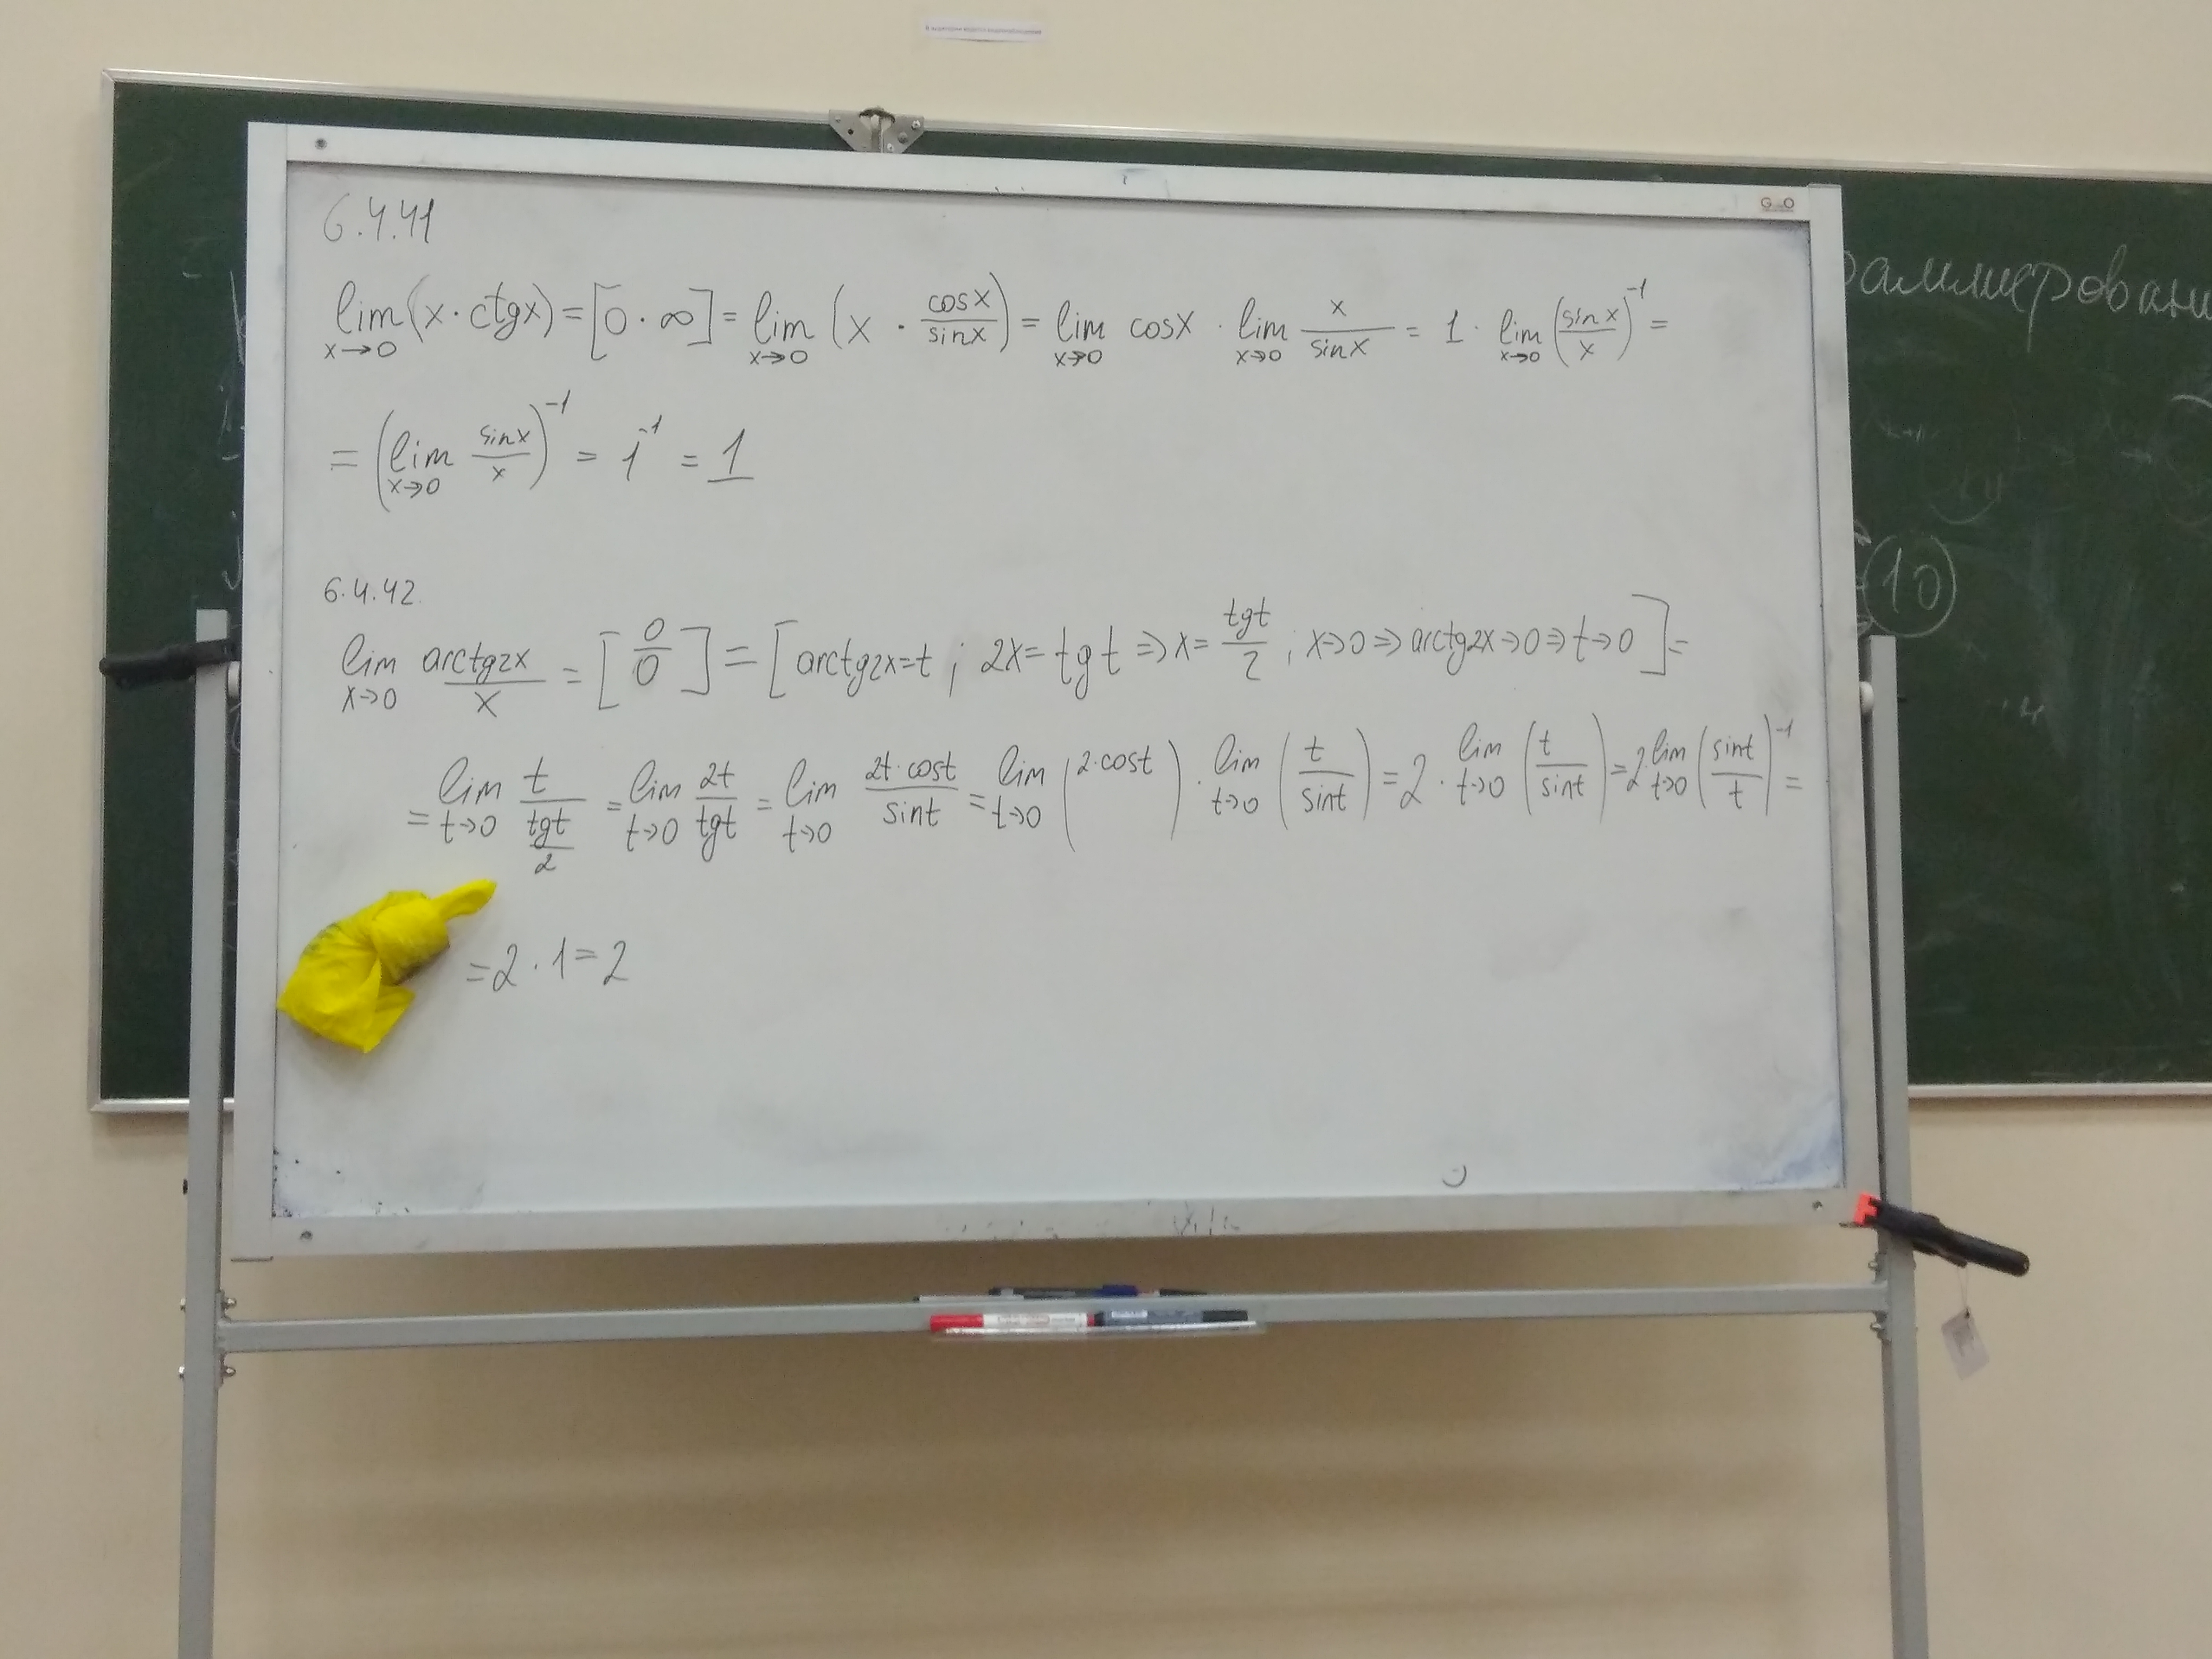 6.4.41
lim x→0 (x · ctgx) = [0 · ∞] = lim x→0 (x · cosx/sinx) = lim x→0 cosx · lim x→0 x/sinx = 1 · lim x→0 (sinx/x)^-1 =
= (lim x→0 sinx/x)^-1 = 1^-1 = 1
6.4.42.
lim x→0 arctg2x/x = [0/0] = [arctg2x=t ; 2x=tgt ⇒ x=tgt/2 ; x→0 ⇒ arctg2x→0 ⇒ t→0] =
= lim t→0 t/(tgt/2) = lim t→0 2t/tgt = lim t→0 2t·cost/sint = lim t→0 (2·cost) · lim t→0 (t/sint) = 2 · lim t→0 (t/sint) = 2 lim t→0 (sint/t)^-1 =
= 2 · 1 = 2
10